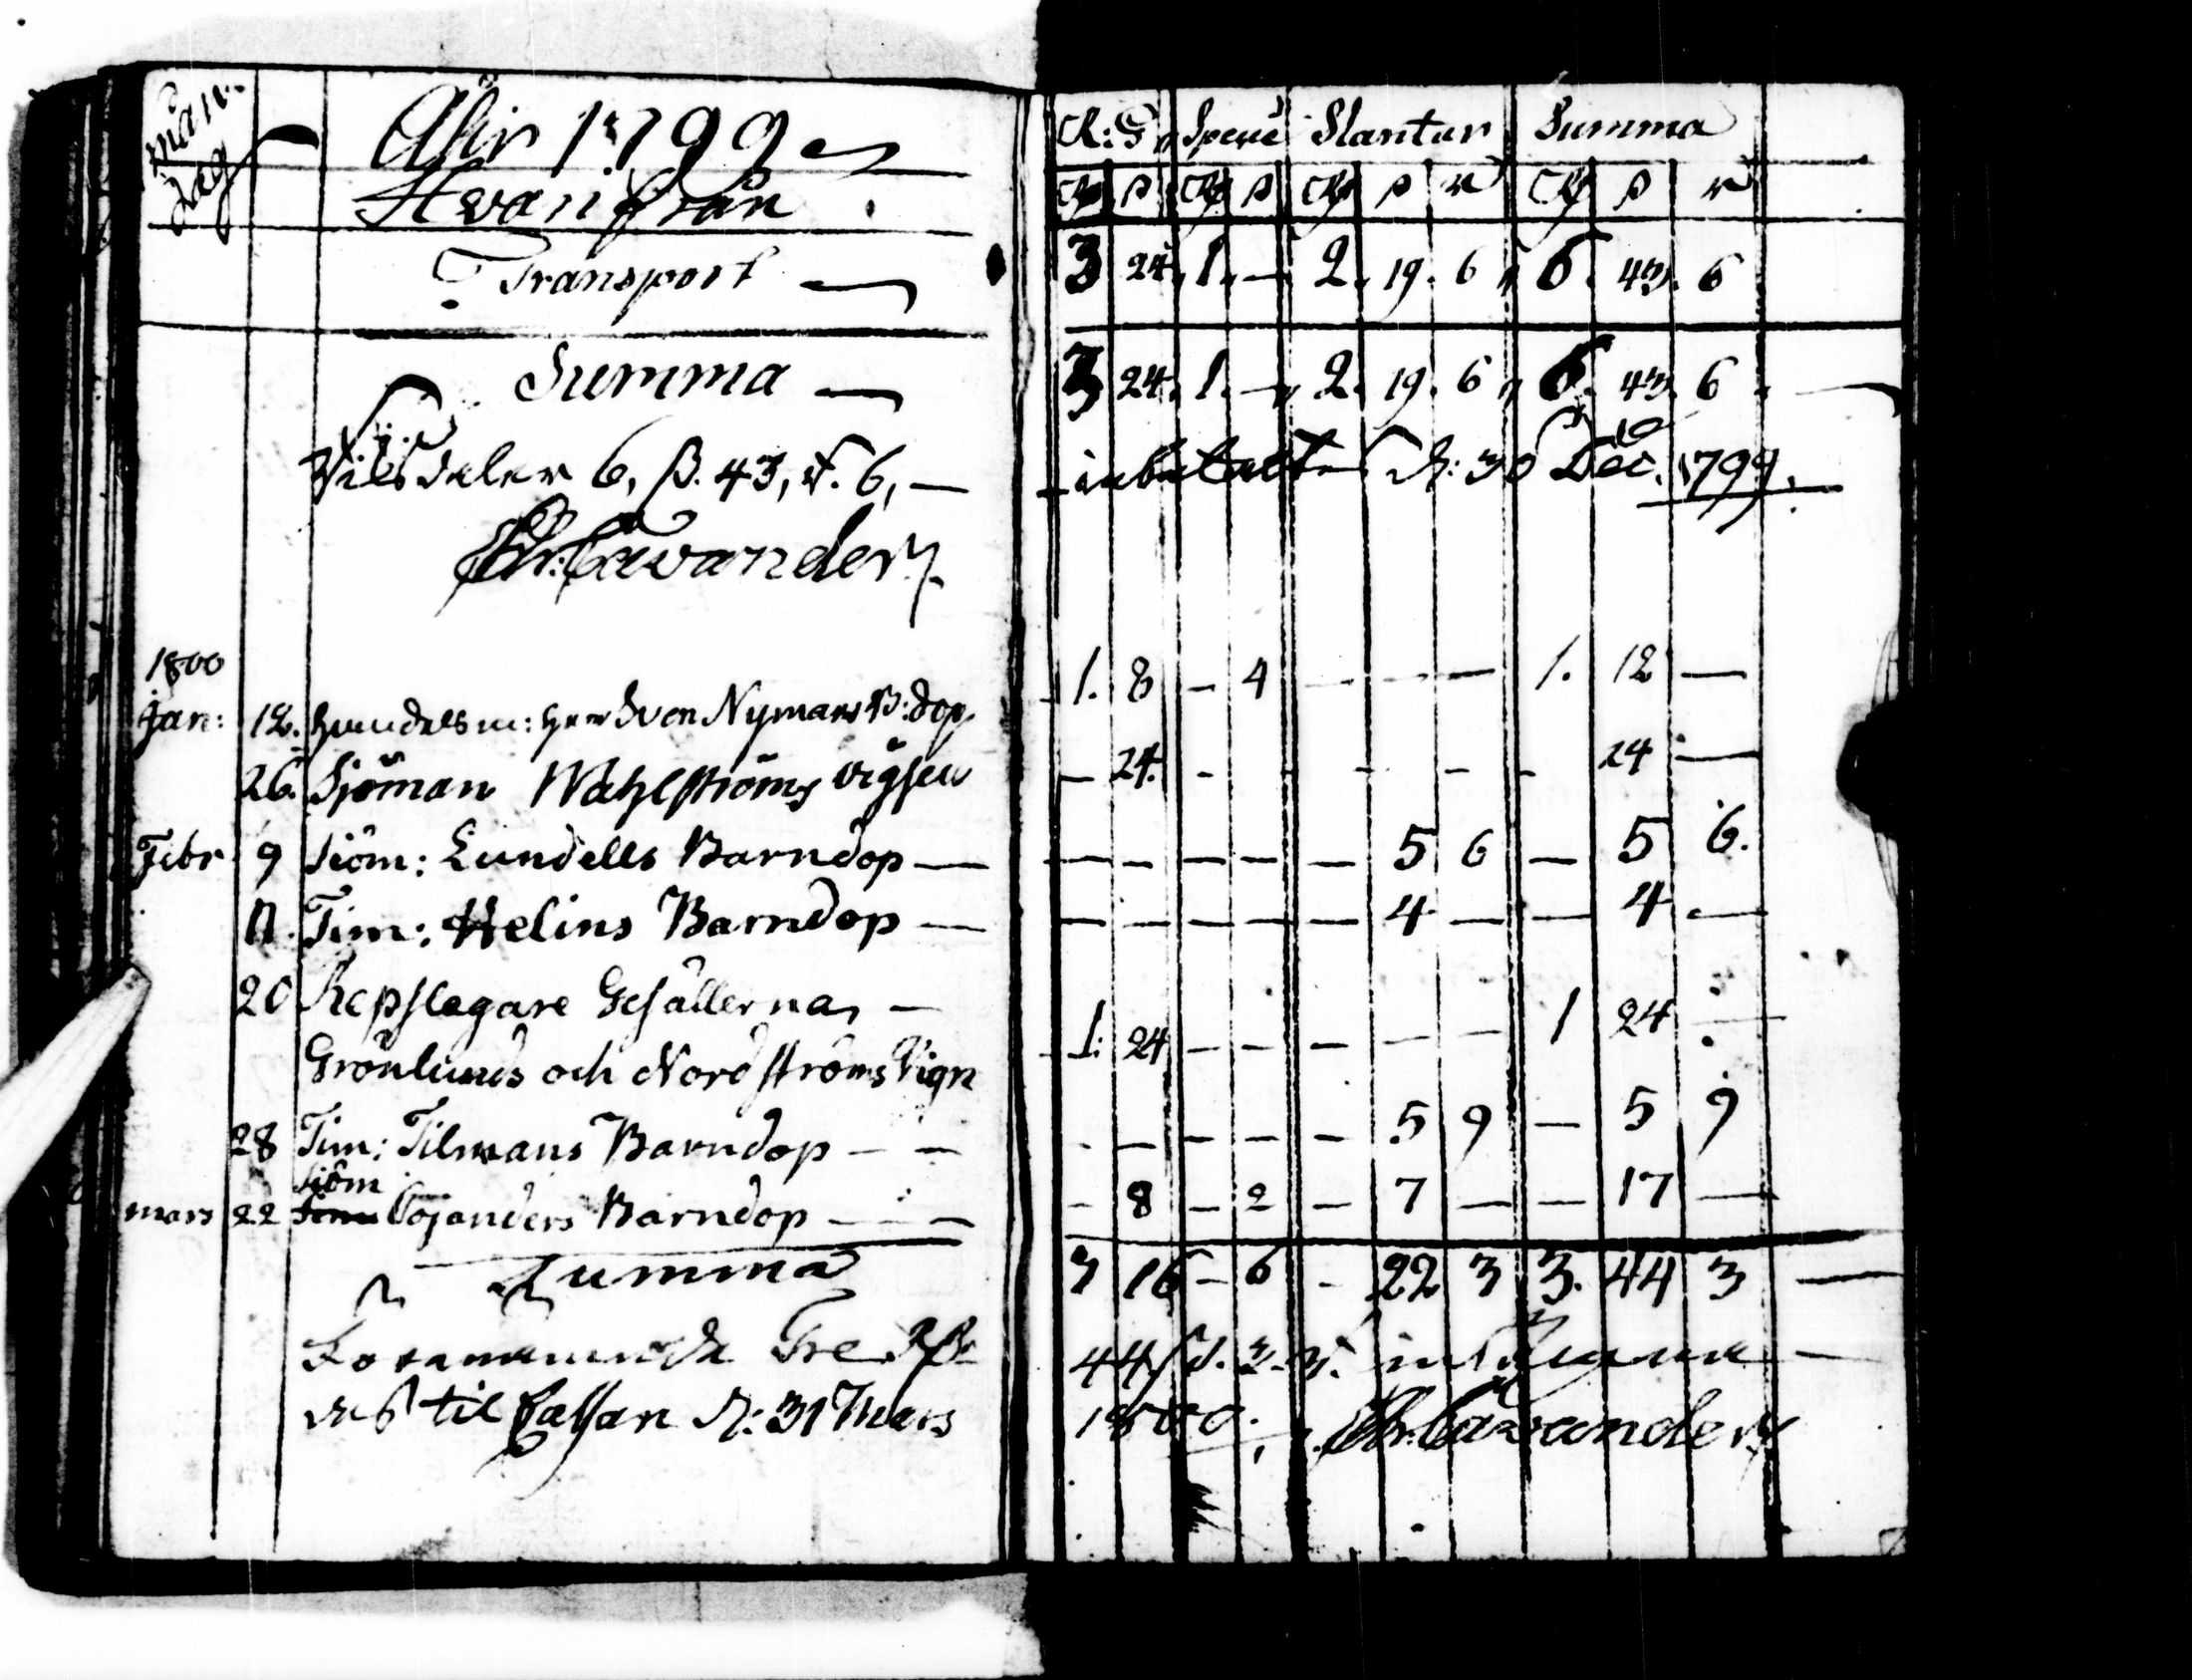 Mån. dag Åhr 1799 R:G Specie Slantar Summa
Hvarifrån Rd ß Rd ß Rd ß r Rd ß r
Transport — 3 24. 1. — 2. 19. 6 6. 43. 6
Summa — 3 24. 1. — 2. 19. 6 6. 43. 6
Riksdaler 6, ß. 43, r. 6, — d: 30 Dec. 1799.
Chr: Cavander
1800
Jan: 12. Handelsm: Herr Sven Nymans B:dop 1. 8 — 4 — — — 1. 12 —
26. Sjöman Wahlströms vigsel — 24. - - - - - 24 —
Febr 9 Siöm: Lundells Barndop — — — — — — 5 6 — 5 6.
11. Tim: Helins Barndop — — — — — — 4 — — 4 —
20 Repslagare Gesällerna, —
Grönlunds och Nordströms Vign 1. 24 — — — — — 1 24 —
28 Tim: Tilmans Barndop — — - — — — — 5 9 — 5 9
Siöm
mars 22 Cojanders Barndop — — — - 8 — 2 — 7 — — 17 —
Summa 3 16 — 6 - 22 3 3. 44 3 —
Tre
til Cassan d: 31 Mars 1800. Chr: Cavander